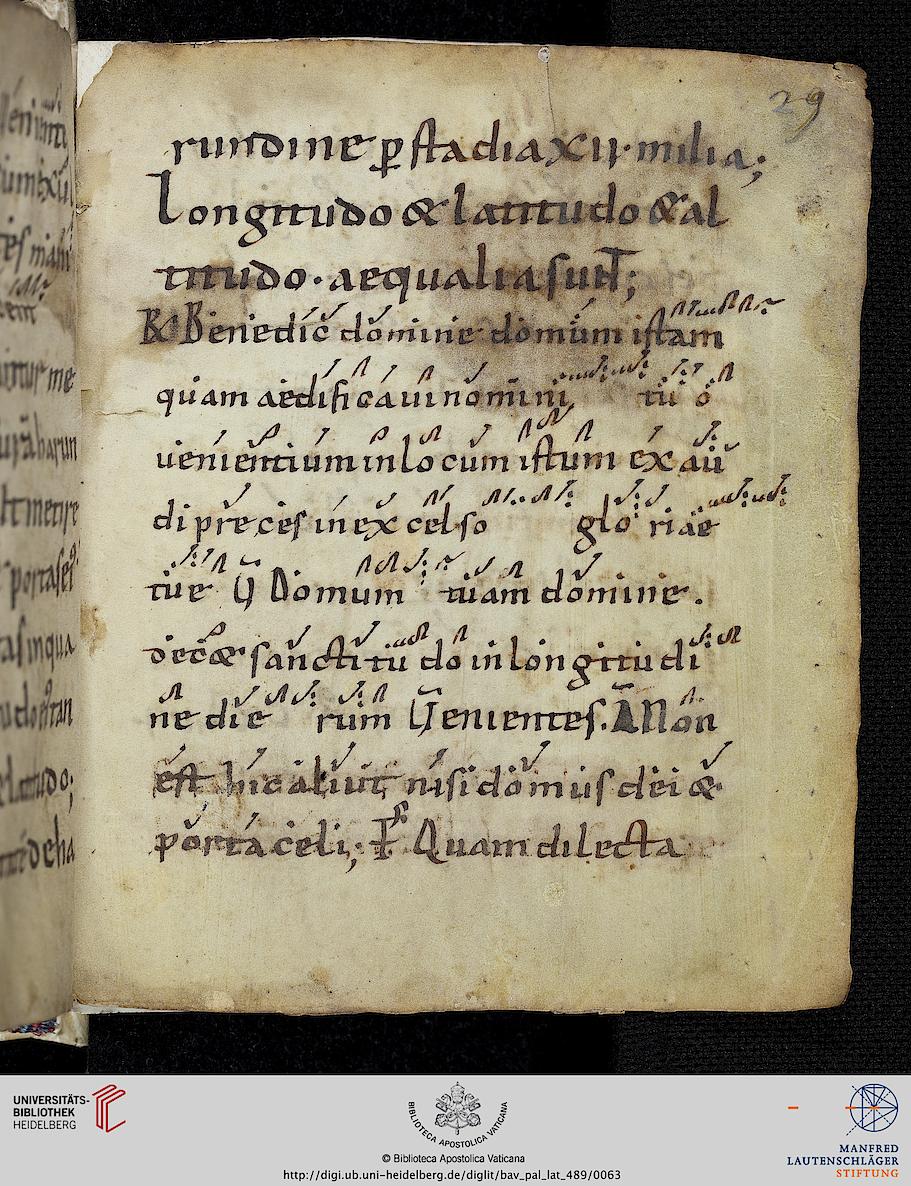 29
rundine ꝑ stadia xii milia;
Longitudo & latitudo & al
titudo · aequalia sunt;
R& Benedic domine domum istam
quam aedificaui nomini tuo
uenientium in locum istum exau
di preces in excelso gloriae
tue V̄ Domum tuam domine .
dec& sanctitudo in longitudi
ne dierum Uenientes. A Non
est hic aliut nisi domus dei &
porta celi; Ps Quam dilecta
UNIVERSITÄTS-
BIBLIOTHEK
HEIDELBERG
BIBLIOTECA APOSTOLICA VATICANA
© Biblioteca Apostolica Vaticana
http://digi.ub.uni-heidelberg.de/diglit/bav_pal_lat_489/0063
MANFRED
LAUTENSCHLÄGER
STIFTUNG